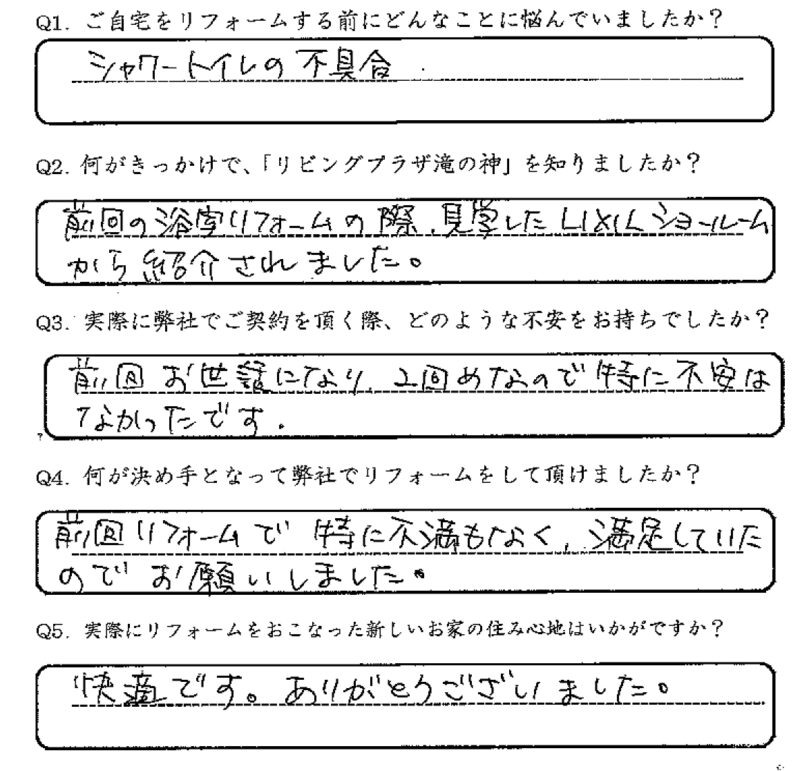 Q1. ご自宅をリフォームする前にどんなことに悩んでいましたか？
シャワートイレの不具合
Q2. 何がきっかけで、「リビングプラザ滝の神」を知りましたか？
前回の浴室リフォームの際、見学したLIXILショールーム
から紹介されました。
Q3. 実際に弊社でご契約を頂く際、どのような不安をお持ちでしたか？
前回お世話になり、2回めなので特に不安は
なかったです.
Q4. 何が決め手となって弊社でリフォームをして頂けましたか？
前回リフォームで特に不満もなく、満足していた
のでお願いしました。
Q5. 実際にリフォームをおこなった新しいお家の住み心地はいかがですか？
快適です。ありがとうございました。